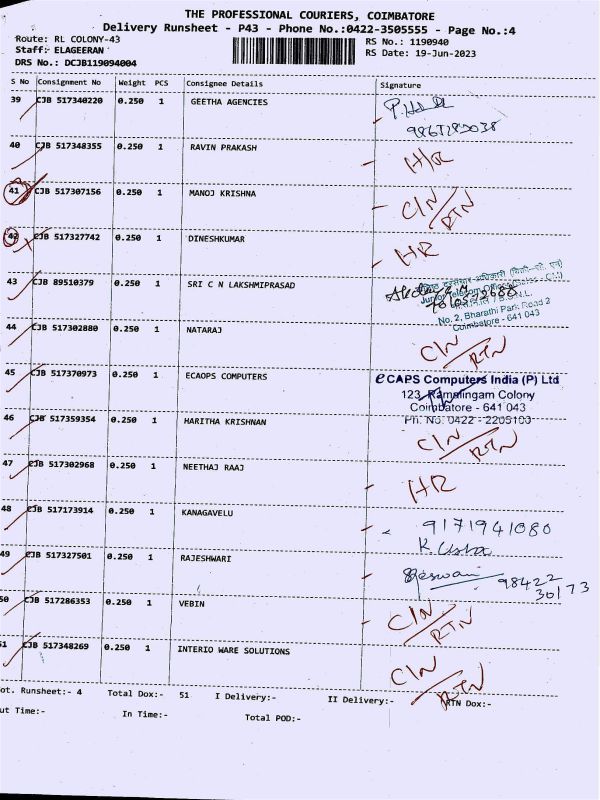 THE PROFESSIONAL COURIERS, COIMBATORE
Delivery Runsheet - P43 - Phone No.:0422-3505555 - Page No.:4
Route: RL COLONY-43
RS No.: 1190940
Staff:- ELAGEERAN
RS Date: 19-Jun-2023
DRS No.: DCJB119094004
S No Consignment No Weight PCS Consignee Details Signature
39 CJB 517340220 0.250 1 GEETHA AGENCIES
40 CJB 517348355 0.250 1 RAVIN PRAKASH H/R
41 CJB 517307156 0.250 1 MANOJ KRISHNA C/N/RTN
42 CJB 517327742 0.250 1 DINESHKUMAR HR
43 CJB 89510379 0.250 1 SRI C N LAKSHMIPRASAD
No. 2, Bharathi Park Road 2
Coimbatore - 641 043
44 CJB 517302880 0.250 1 NATARAJ C/N/RTN
45 CJB 517370973 0.250 1 ECAOPS COMPUTERS
eCAPS Computers India (P) Ltd
123, Ramalingam Colony
Coimbatore - 641 043
Ph. No. 0422 - 2205103
46 CJB 517359354 0.250 1 HARITHA KRISHNAN C/N/RTN
47 CJB 517302968 0.250 1 NEETHAJ RAAJ HR
48 CJB 517173914 0.250 1 KANAGAVELU 9171941080
K. Usha
49 CJB 517327501 0.250 1 RAJESHWARI 98422
30173
50 CJB 517286353 0.250 1 VEBIN C/N/RTN
51 CJB 517348269 0.250 1 INTERIO WARE SOLUTIONS C/N/RTN
ot. Runsheet:- 4 Total Dox:- 51 I Delivery:- II Delivery:- RTN Dox:-
ut Time:- In Time:- Total POD:-